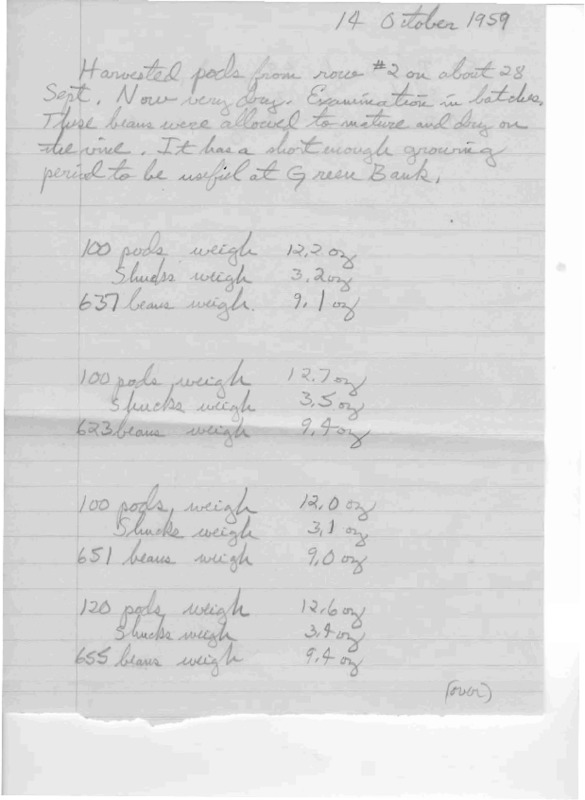 14 October 1959
Harvested pods from row #2 on about 28
Sept. Now very dry. Examination in batches.
These beans were allowed to mature and dry on
the vine. It has a short enough growing
period to be useful at Green Bank.
100 pods weigh 12.2 oz
Shucks weigh 3.2 oz
637 beans weigh. 9.1 oz
100 pods weigh 12.7 oz
Shucks weigh 3.5 oz
623 beans weigh 9.4 oz
100 pods weigh 12.0 oz
Shucks weigh 3.1 oz
651 beans weigh 9.0 oz
120 pods weigh 12.6 oz
Shucks weigh 3.4 oz
655 beans weigh 9.4 oz
(over)